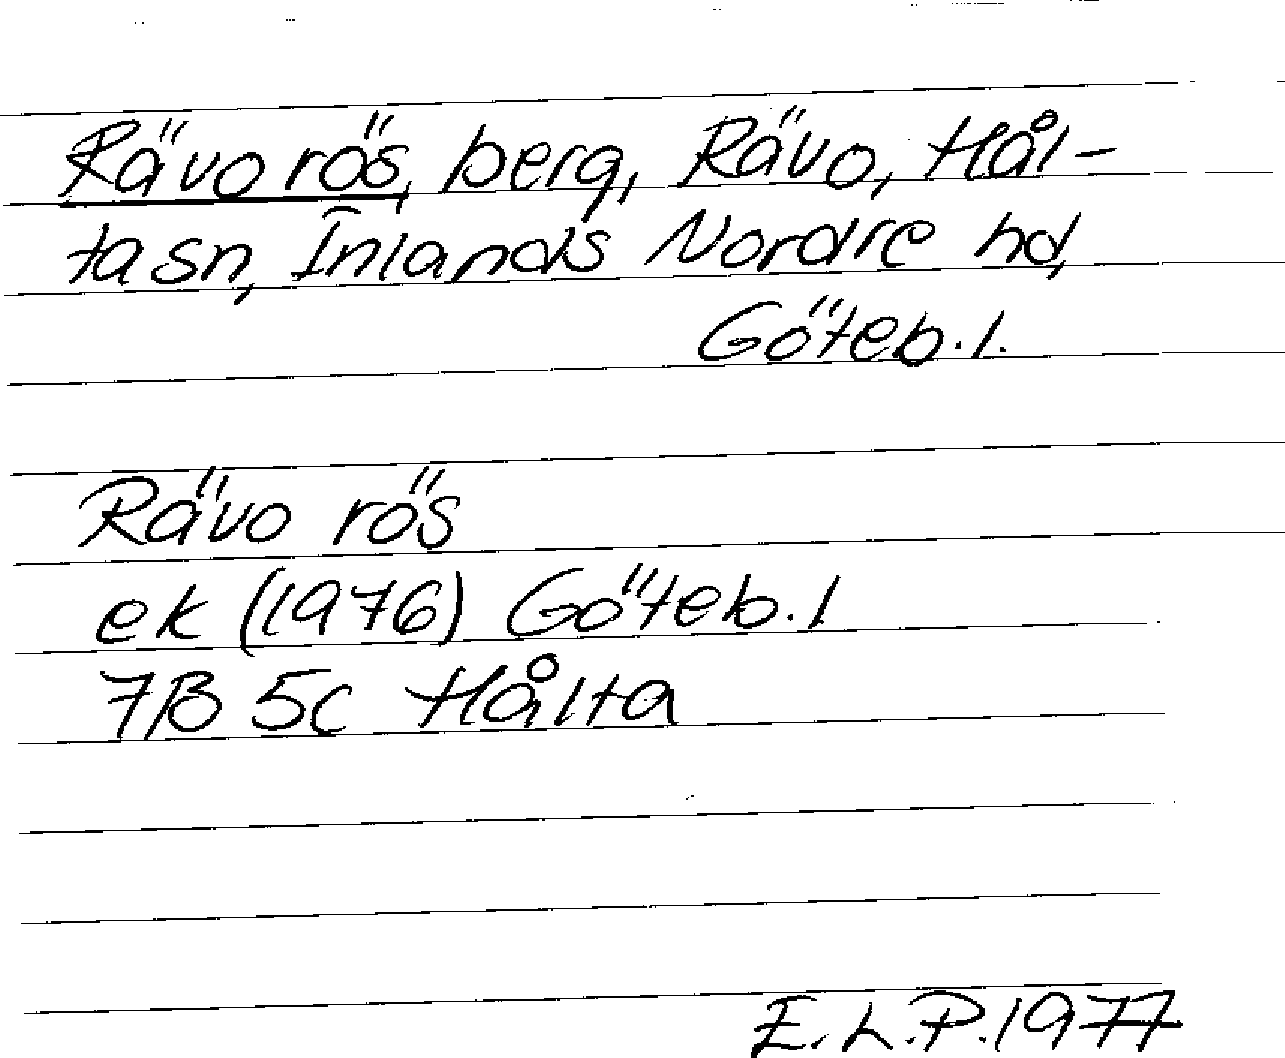 Rävo rös, berg, Rävo, Hål-
ta sn, Inlands Nordre hd,
Göteb.l.
Rävo rös
ek (1976) Göteb.l
7B 5c Hålta
E.L.P.1977